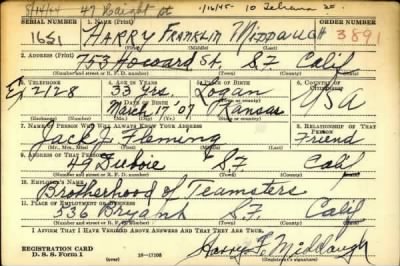 8/14/44 47 Haight St 1/16/45-
SERIAL NUMBER 1. NAME (Print) ORDER NUMBER
1651 HARRY FRANKLIN MIDDAUGH 3891
(First) (Middle) (Last)
2. ADDRESS (Print)
753 Howard St, S.F. Calif
(Number and street or R. F. D. number) (Town) (County) (State)
3. TELEPHONE 4. AGE IN YEARS 5. PLACE OF BIRTH 6. COUNTRY OF CITIZENSHIP
Ex 2128 33 yrs. Logan USA
DATE OF BIRTH (Town or county)
March 17 '07 Kansas
(Mo.) (Day) (Yr.) (State or country)
7. NAME OF PERSON WHO WILL ALWAYS KNOW YOUR ADDRESS 8. RELATIONSHIP OF THAT PERSON
Jack J. Fleming Friend
(Mr., Mrs., Miss) (First) (Middle) (Last)
9. ADDRESS OF THAT PERSON
S.F. Calif
(Number and street or R. F. D. number) (Town) (County) (State)
10. EMPLOYER'S NAME
Brotherhood of Teamsters
11. PLACE OF EMPLOYMENT OR BUSINESS
536 Bryant S.F. Calif
(Number and street or R. F. D. number) (Town) (County) (State)
I AFFIRM THAT I HAVE VERIFIED ABOVE ANSWERS AND THAT THEY ARE TRUE.
REGISTRATION CARD
D. S. S. Form 1 16—17105 Harry F. Middaugh